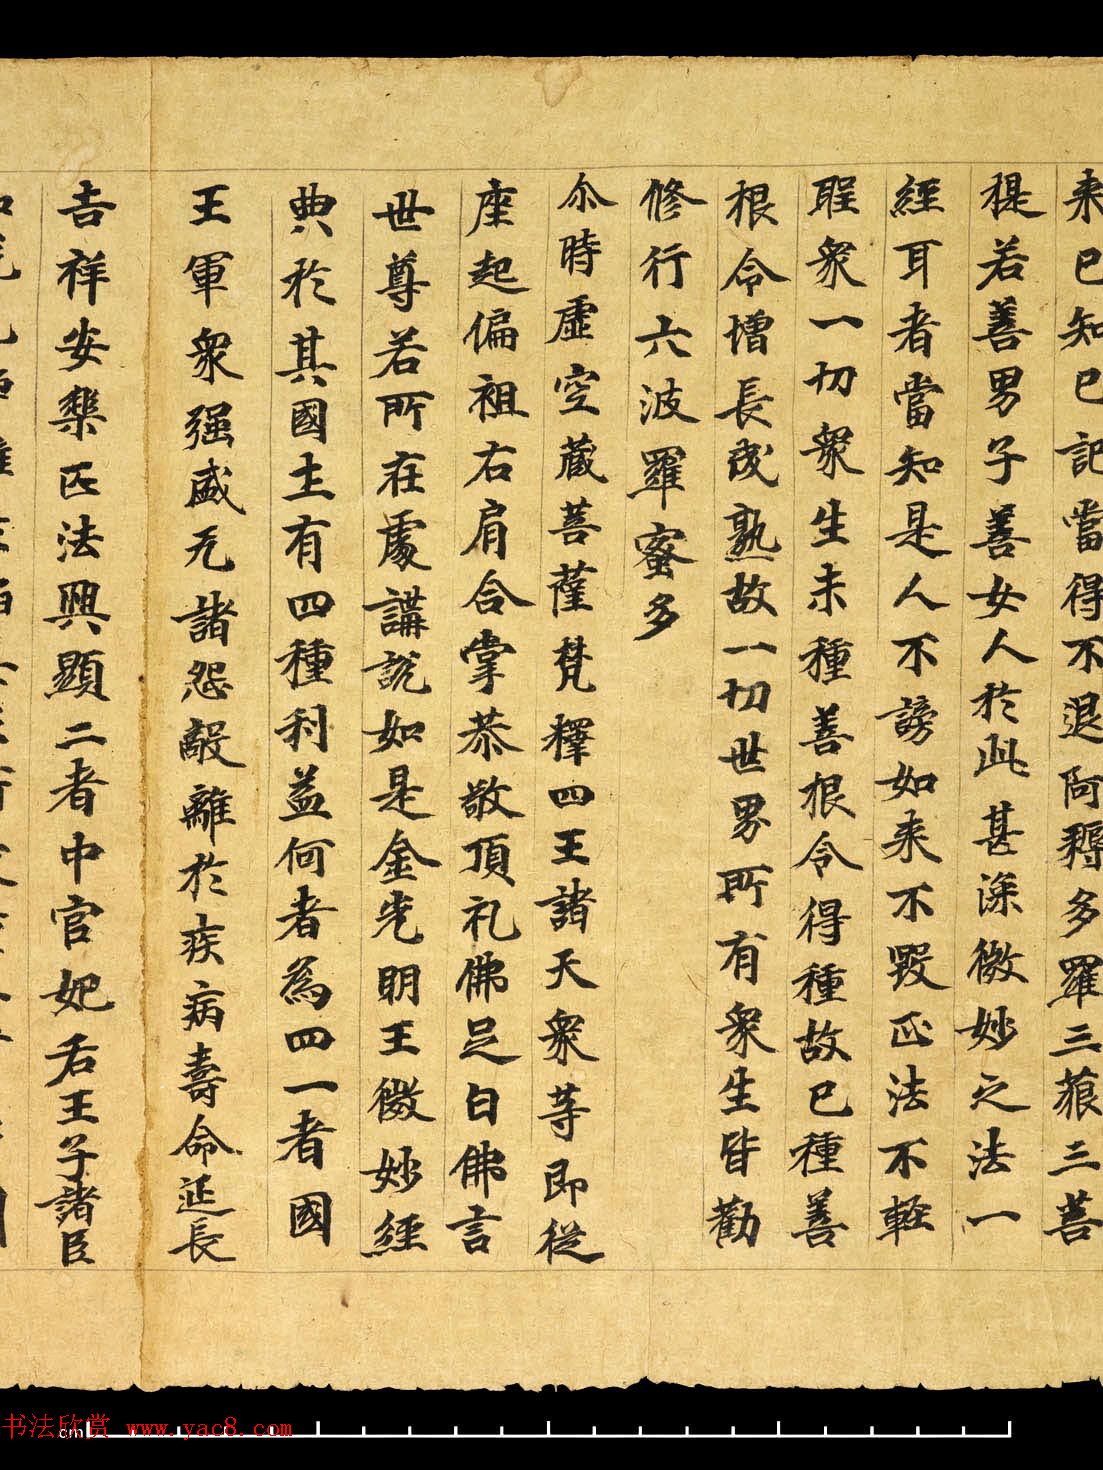 来已知已記當得不退阿耨多羅三藐三菩
提若善男子善女人於此甚深微妙之法一
經耳者當知是人不謗如来不毀正法不輕
聖衆一切衆生未種善根令得種故已種善
根令增長成熟故一切世界所有衆生皆勸
修行六波羅蜜多
尒時虛空藏菩薩梵釋四王諸天衆等即從
座起偏袒右肩合掌恭敬頂礼佛足白佛言
世尊若所在處講說如是金光明王微妙經
典於其國土有四種利益何者為四一者國
王軍衆强盛无諸怨敵離於疾病壽命延長
吉祥安樂正法興顯二者中宮妃后王子諸臣
书法欣赏 www.yac8.com
cm